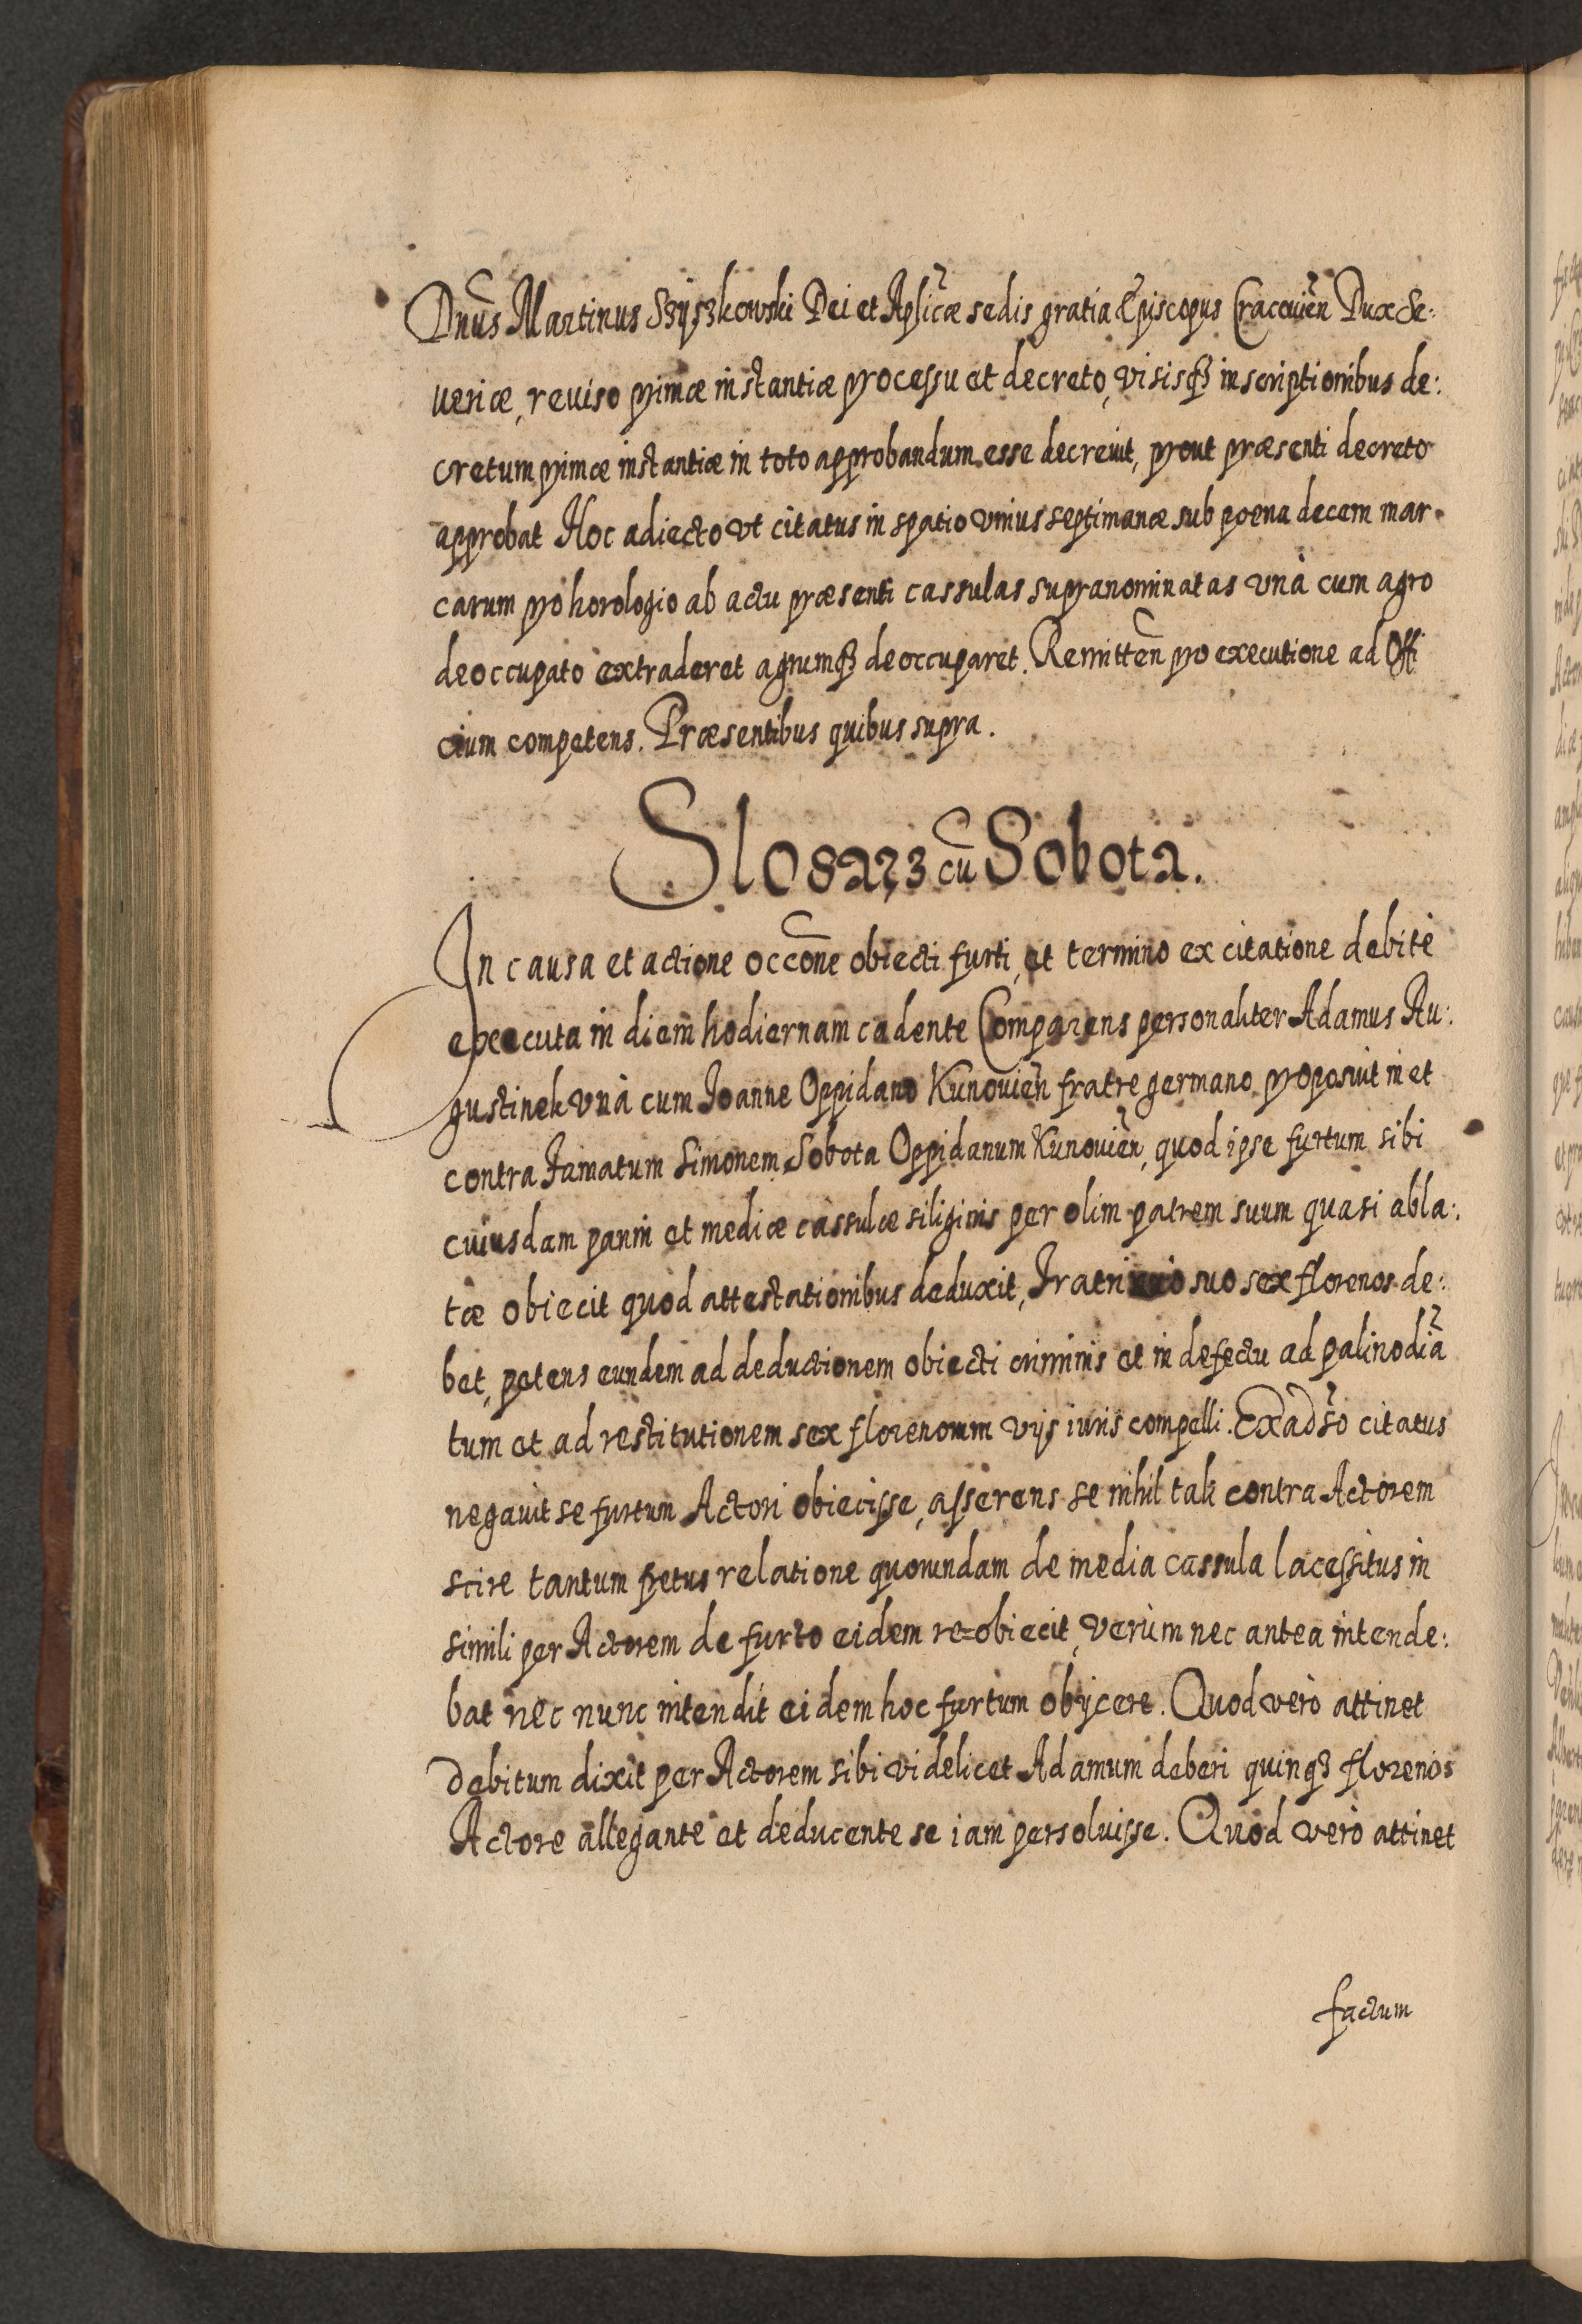 Dnus Martinus Szyszkowski Dei et Aplicæ sedis gratia Episcopus Cracovien Dux Se:
veriæ, reviso primæ instantiæ processu et decreto, visisq3 inscriptionibus de:
cretum primæ instantiæ in toto approbandum esse decrevit, prout præsenti decreto
approbat Hoc adiecto vt citatus in spatio vnius septimanæ sub poena decem mar-
carum pro horologio ab actu præsenti cassulas supranominatas vnà cum agro
deoccupato extraderet agrumq3 deoccuparet. Remitten pro executione ad Offi
cium competens. Præsentibus quibus supra.
Slosarz cu Sobota.
In causa et actione occone obiecti furti, et termino ex citatione debitè
executa in diem hodiernam cadente Comparens personaliter Adamus Au:
gustinek vnà cum Joanne Oppidano Kunovien fratre germano proposuit in et
contra Famatum Simonem Sobota Oppidanum Kunovien, quod ipse furtum sibi
cuiusdam panni et mediæ cassulæ siliginis per olim patrem suum quasi abla:
tæ obiecit quod attestationibus deduxit, Fratri suo sex florenos de:
bet, petens eundem ad deductionem obiecti criminis et in defectu ad palinodia
tum et ad restitutionem sex florenorum vijs iuris compelli. Exadso citatus
negavit se furtum Actori obiecisse, asserens se nihil tale contra Actorem
scire tantum fretus relatione quorundam de media cassula lacessitus in
simili per Actorem de furto eidem re=obiecit, verùm nec antea intende:
bat nec nunc intendit eidem hoc furtum obijcere. Quod verò attinet
debitum dixit per Actorem sibi videlicet Adamum deberi quinq3 florenos
Actore allegante et deducente se iam persoluisse. Quod verò attinet
factum